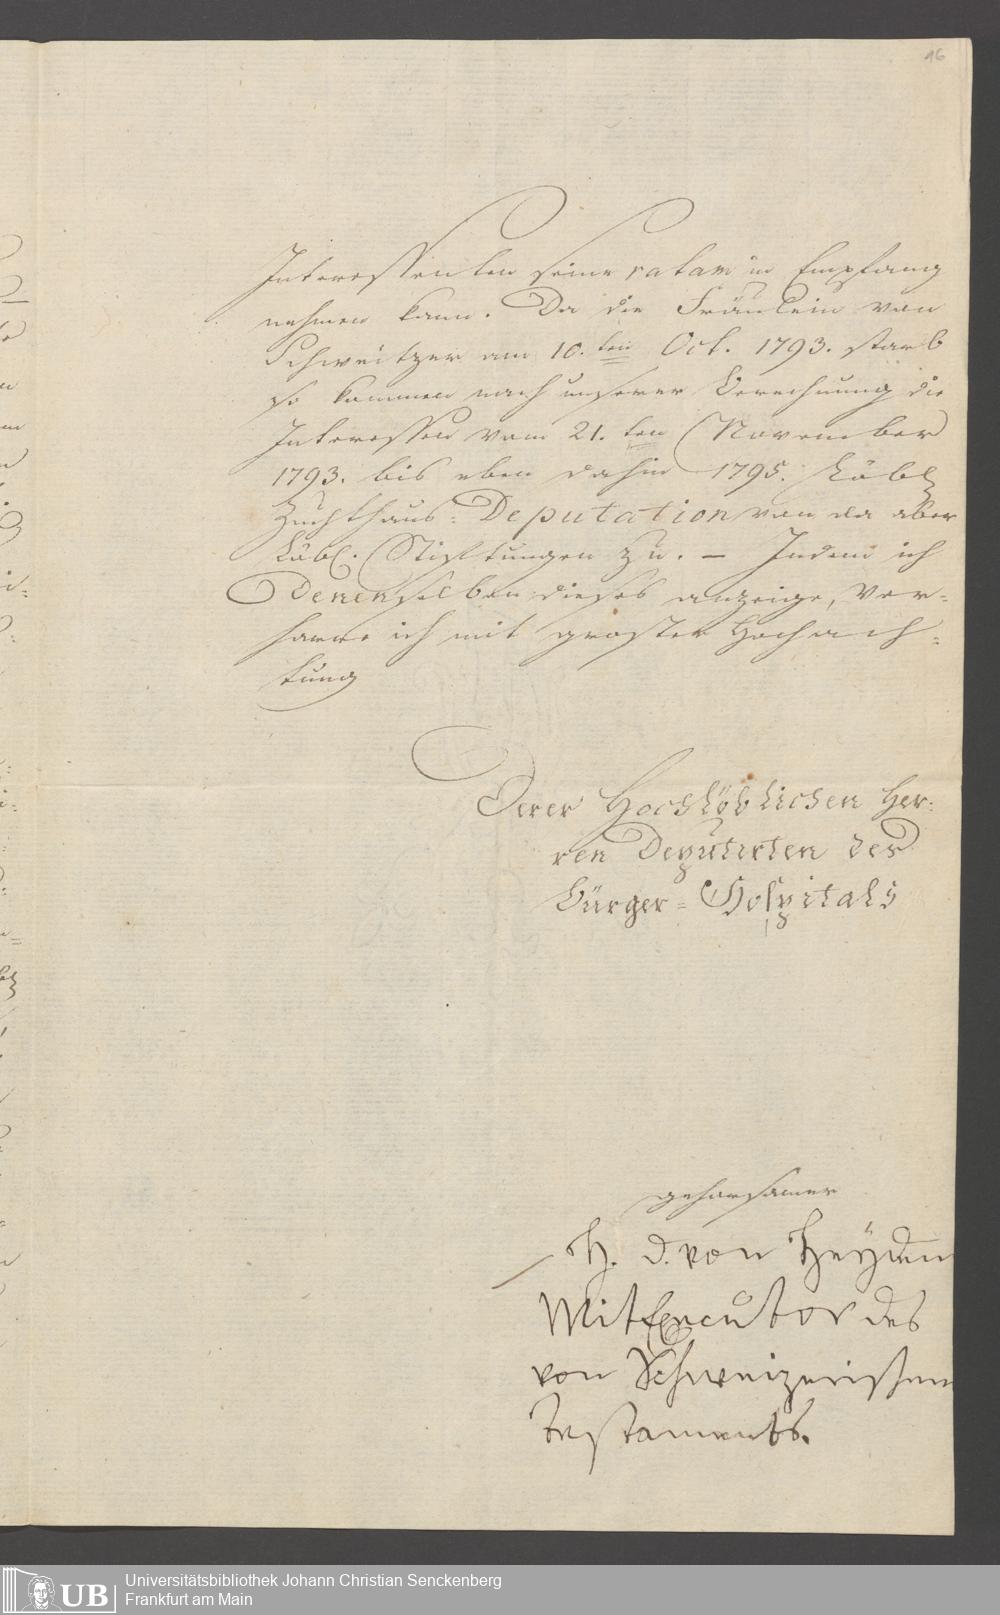 16
Interessenten seine ratam in Empfang
nehmen kann. Da die Fräulein von
Schweitzer am 10.ten Oct. 1793. starb
so kommen nach unserer Berechnung die
Interessen vom 21.ten November
1793. bis eben dahin 1795. Löbl.
Zuchthaus=Deputation von da aber
Löbl. Stiftungen zu. — Indem ich
Denenselben dieses anzeige, ver=
harre ich mit groster Hochach=
tung
Derer Hochlöblichen Her=
ren Deputirten des
Bürger=Hospitals
gehorsamer
H. d. von Heyden
MitExecutor des
von Schweizerischen
Testaments.
UB
Universitätsbibliothek Johann Christian Senckenberg
Frankfurt am Main